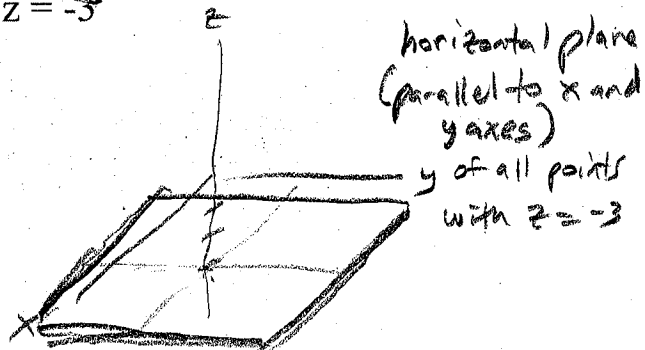 z = -3
z
horizontal plane
(parallel to x and
y axes)
y of all points
with z = -3
x